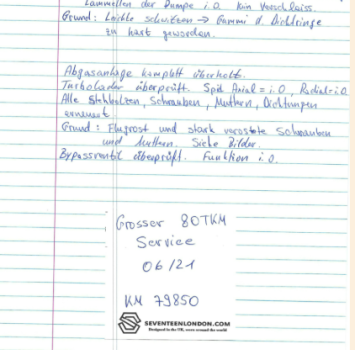 Lamellen der Pumpe i.O. kein Verschleiss.
Grund: Leichte schwitzen → Gummi d. Dichtringe
zu hart geworden.
Abgasanlage komplett überholt.
Turbolader überprüft. Spiel Axial = i.O, Radial = i.O
Alle Stehbolzen, Schrauben, Muttern, Dichtungen
erneuert.
Grund: Flugrost und stark verostete Schrauben
und Muttern. Siehe Bilder.
Bypassventil überprüft. Funktion i.O.
Grosser 80TKM
Service
06/21
KM 79850
SEVENTEENLONDON.COM
Designed in the UK, worn around the world